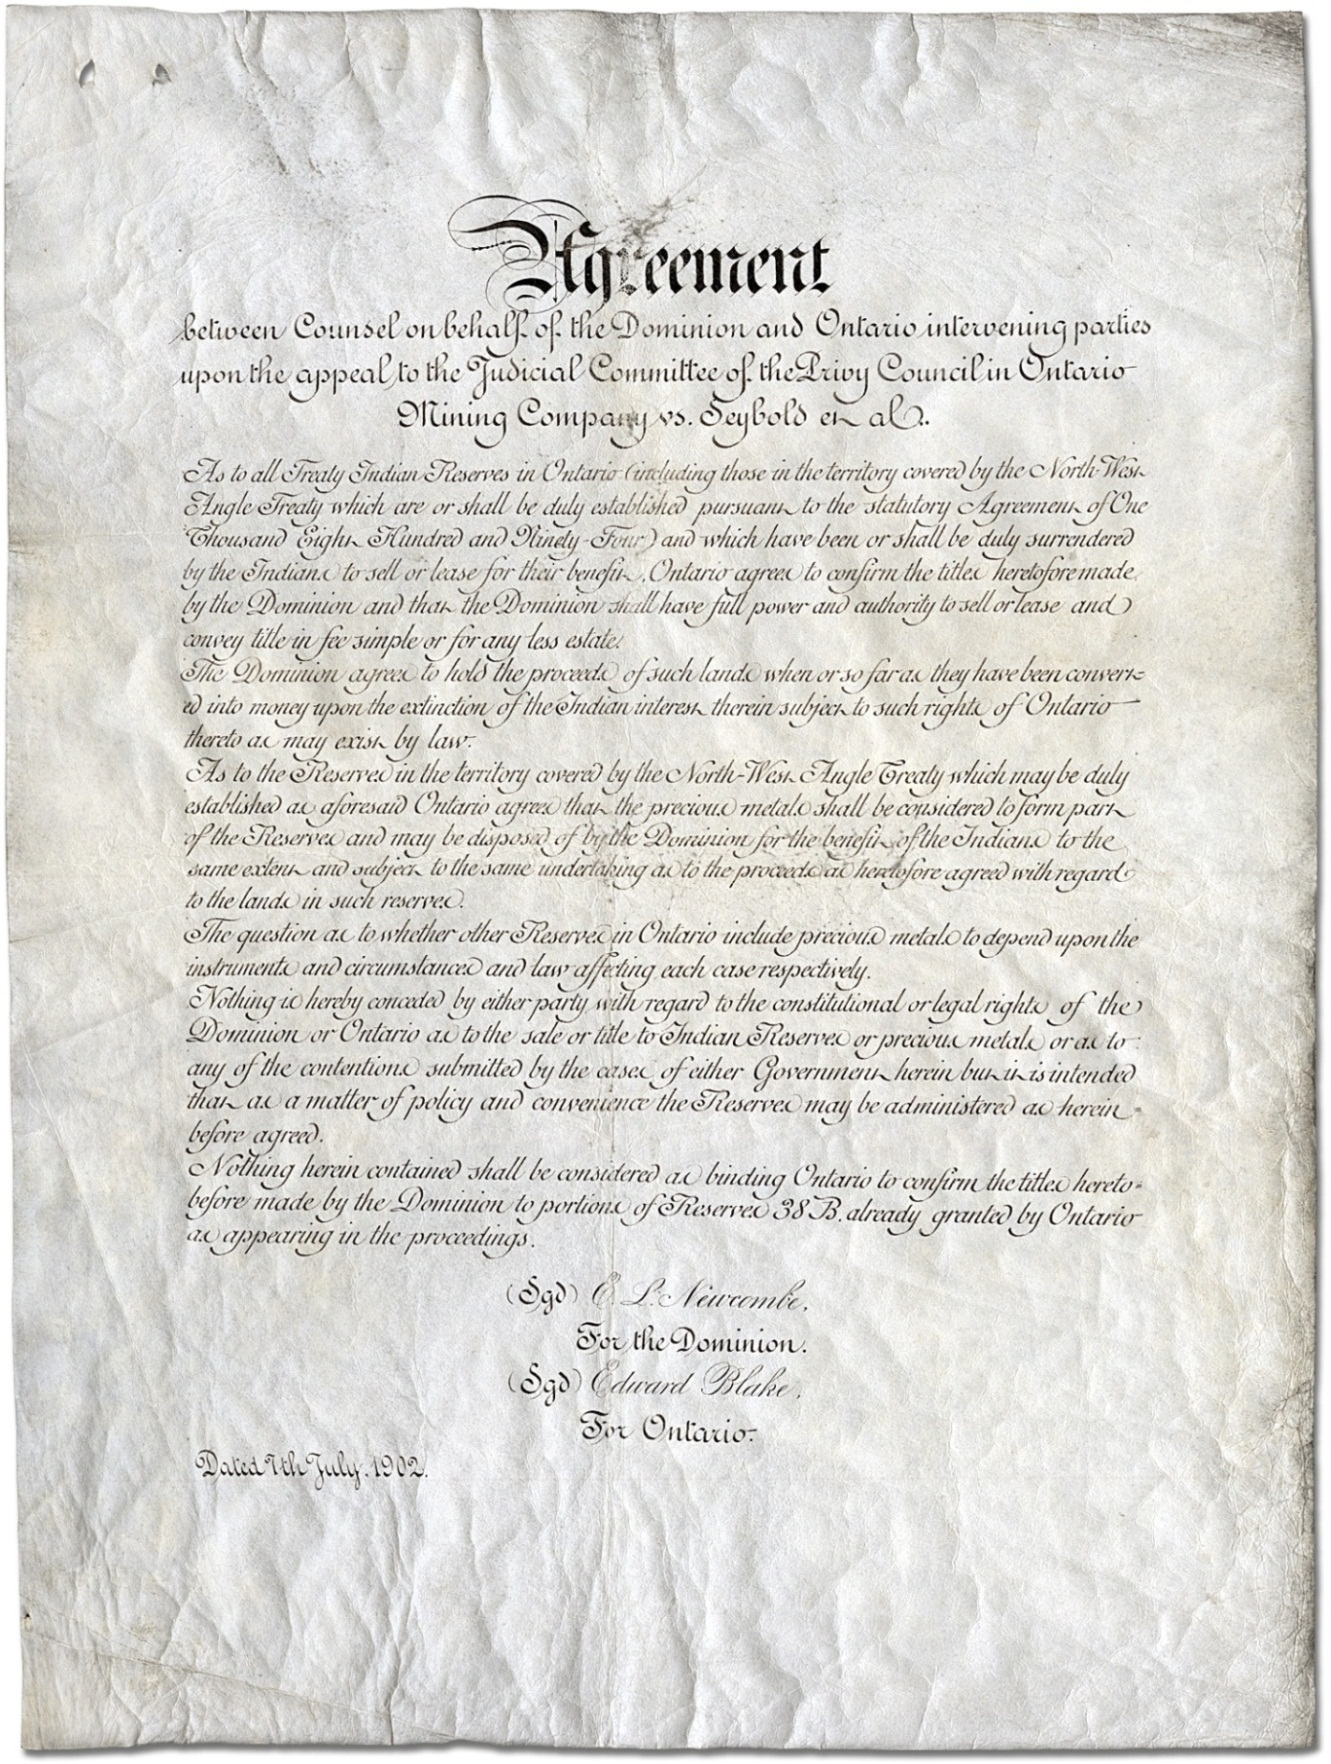 Agreement
between Counsel on behalf of the Dominion and Ontario intervening parties
upon the appeal to the Judicial Committee of the Privy Council in Ontario
Mining Company vs. Seybold et al.
As to all Treaty Indian Reserves in Ontario (including those in the territory covered by the North-West
Angle Treaty which are or shall be duly established pursuant to the statutory Agreement of One
Thousand Eight Hundred and Ninety-Four) and which have been or shall be duly surrendered
by the Indians to sell or lease for their benefit, Ontario agrees to confirm the titles heretofore made
by the Dominion and that the Dominion shall have full power and authority to sell or lease and
convey title in fee simple or for any less estate.
The Dominion agrees to hold the proceeds of such lands when or so far as they have been convert=
ed into money upon the extinction of the Indian interest therein subject to such rights of Ontario
thereto as may exist by law.
As to the Reserves in the territory covered by the North-West Angle Treaty which may be duly
established as aforesaid Ontario agrees that the precious metals shall be considered to form part
of the Reserves and may be disposed of by the Dominion for the benefit of the Indians to the
same extent and subject to the same undertaking as to the proceeds as heretofore agreed with regard
to the lands in such reserves.
The question as to whether other Reserves in Ontario include precious metals to depend upon the
instruments and circumstances and law affecting each case respectively.
Nothing is hereby conceded by either party with regard to the constitutional or legal rights of the
Dominion or Ontario as to the sale or title to Indian Reserves or precious metals or as to
any of the contentions submitted by the cases of either Government herein but it is intended
that as a matter of policy and convenience the Reserves may be administered as herein
before agreed.
Nothing herein contained shall be considered as binding Ontario to confirm the titles hereto=
before made by the Dominion to portions of Reserves 38 B. already granted by Ontario
as appearing in the proceedings.
(Sgd) E. L. Newcombe.
For the Dominion.
(Sgd) Edward Blake.
For Ontario.
Dated 7th July. 1902.